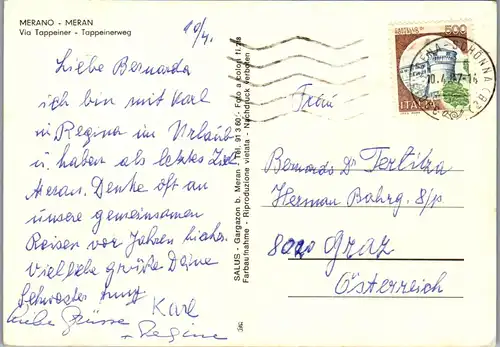 MERANO - MERAN
Via Tappeiner - Tappeinerweg
10/4.
Liebe Bernarda
ich bin mit Karl
u Regina im Urlaub
u. haben als letztes Ziel
Meran. Denke oft an
unsere gemeinsamen
Reisen vor Jahren hieher.
Viel liebe grüße Deine
Schwester
Karl
Liebe Grüsse
Regine
SALUS - Gargazon b. Meran - Tel. 91360 - Foto a colori
Farbaufnahme - Riproduzione vietata - Nachdruck verboten
500
ITALIA
SCHÖNNA
(BZ)
Frau
Bernarda Dr Terlitza
Herman Bahrg. 8/p.
8020 Graz
Österreich